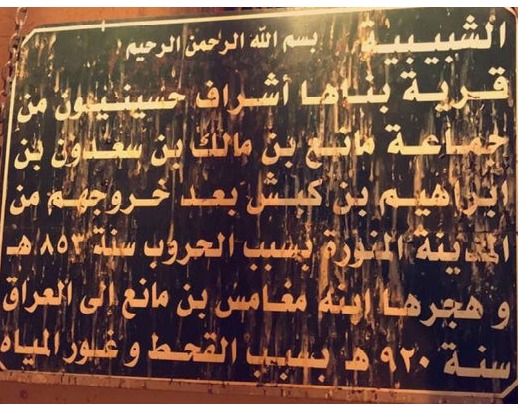 الشبيبية بسم الله الرحمن الرحيم
قرية بناها أشراف حسينييون من
جماعة مانع بن مالك بن سعدون بن
ابراهيم بن كبش بعد خروجهم من
المدينة المنورة بسبب الحروب سنة ٨٥٣ هـ
و هجرها ابنه مغامس بن مانع الى العراق
سنة ٩٢٠ هـ بسبب القحط و غور المياه